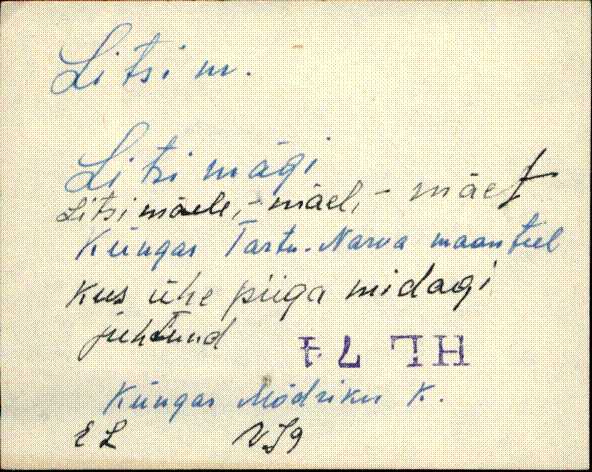 Litsi m.
Litsi mägi
Litsi mäele, -mäel, -mäet
Küngas Tartu-Narva maanteel
kus ühe piiga midagi
juhtund
HL 74
Küngas Mõdriku K.
EL VJg